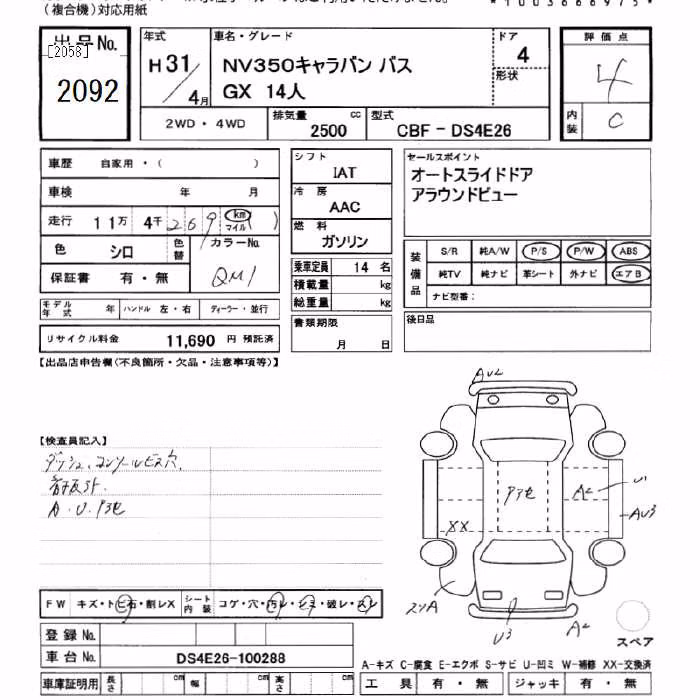 (複合機)対応用紙
出品No.
[2058]
2092
年式
H31/4月
車名・グレード
NV350キャラバン バス
GX 14人
ドア
4
形状
評価点
4
内装
C
2WD・4WD
排気量
2500 cc
型式
CBF-DS4E26
車歴 自家用・( )
車検 年 月
走行 11万 4千 269 km マイル ( )
色 シロ 色替 カラーNo. QM1
保証書 有・無
モデル年式 年 ハンドル 左・右 ディーラー・並行
リサイクル料金 11,690 円 預託済
シフト
IAT
冷房
AAC
燃料
ガソリン
乗車定員 14 名
積載量 kg
総重量 kg
書類期限
月 日
セールスポイント
オートスライドドア
アラウンドビュー
装備品
S/R 純A/W P/S P/W ABS
純TV 純ナビ 革シート 外ナビ エアB
ナビ型番:
後日品
【出品店申告欄(不良箇所・欠品・注意事項等)】
【検査員記入】
ダッシュ、コンソールビス穴、
A・U・
AU2
U1
A2
AU3
XX
U3
A2
スペア
FW キズ・トビ石・割レX シート内装 コゲ・穴・汚レ・シミ・破レ・スレ
登録No.
車台No. DS4E26-100288
車庫証明用 長さ cm 幅 cm 高さ cm
A-キズ C-腐食 E-エクボ S-サビ U-凹ミ W-補修 XX-交換済
工具 有・無 ジャッキ 有・無